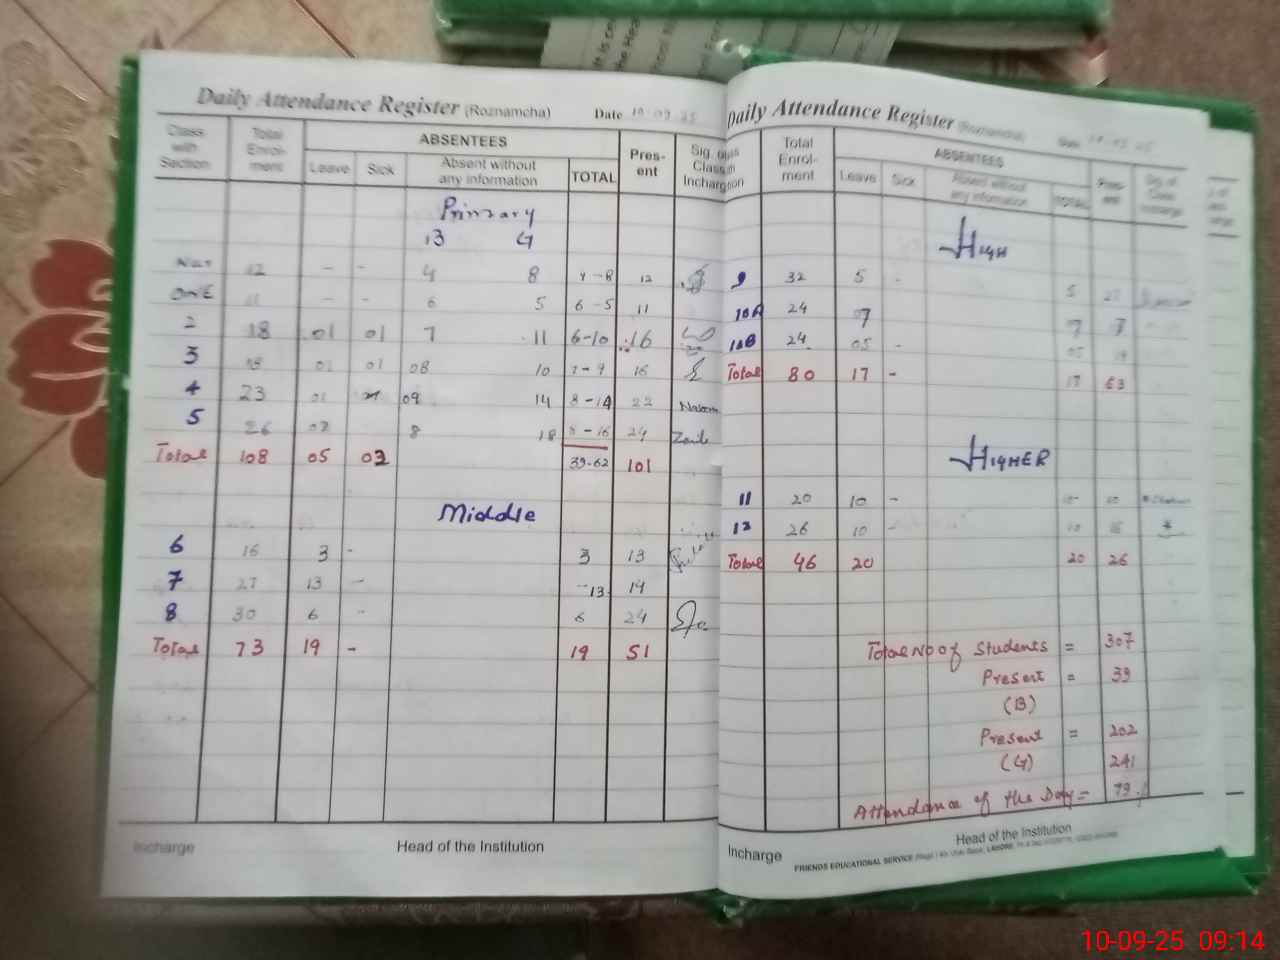 Daily Attendance Register (Roznamcha) Date 10-09-25
Class with Section Total Enrol-ment ABSENTEES Pres-ent Sig. of Class Incharge
Leave Sick Absent without any information TOTAL
Primary
B G
Nur 12 - - 4 8 4-8 12
ONE 11 - - 6 5 6-5 11
2 18 01 01 7 11 6-10 16
3 18 01 01 08 10 7-9 16
4 23 01 09 14 8-14 22 Naseem
5 26 02 8 18 8-16 24
Total 108 05 02 39-62 101
Middle
6 16 3 - 3 13
7 27 13 - 13 14
8 30 6 - 6 24
Total 73 19 - 19 51
Incharge Head of the Institution
Daily Attendance Register (Roznamcha) Date
Total Enrol-ment ABSENTEES Pres-ent Sig. of Class Incharge
Leave Sick Absent without any information TOTAL
HIGH
9 32 5 - 5 27
10A 24 07 7
10B 24 05 - 05 19
Total 80 17 - 17 63
HIGHER
11 20 10 - 10 10
12 26 10 - 10 16
Total 46 20 20 26
Total No of Students = 307
Present = 39
(B)
Present = 202
(G) 241
Attendance of the Day = 79
Incharge Head of the Institution
FRIENDS EDUCATIONAL SERVICE
10-09-25 09:14